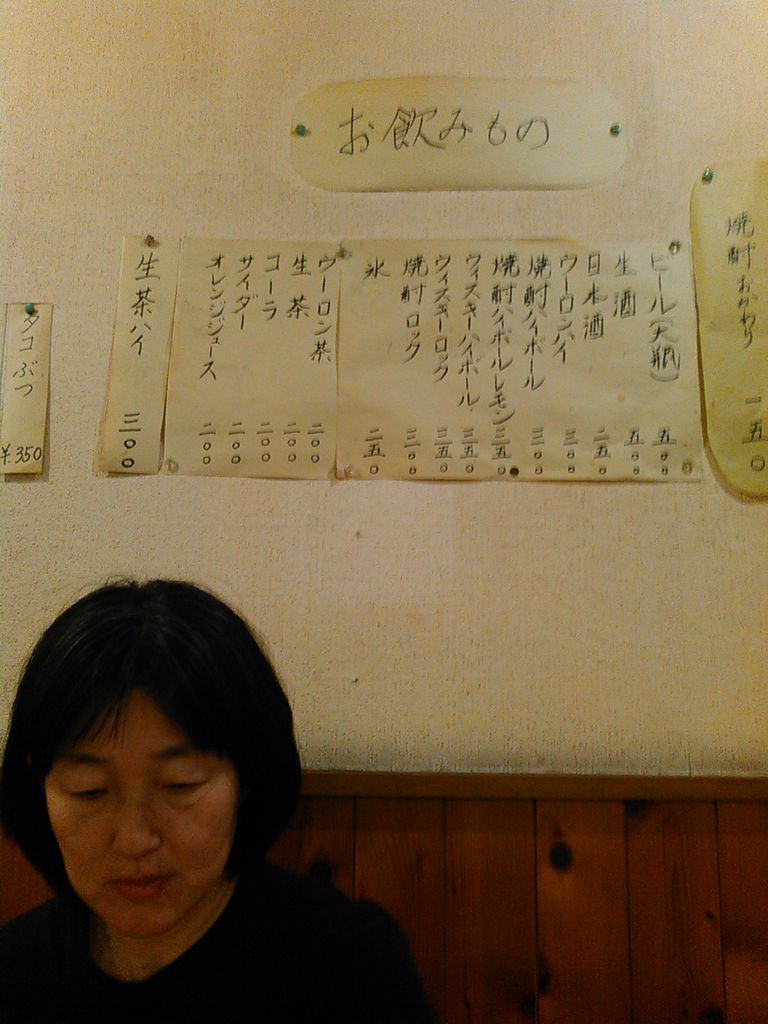 お飲みもの
焼酎おかわり 一五〇
ビール(大瓶) 五〇〇
生酒 五〇〇
日本酒 二五〇
ウーロンハイ 三〇〇
焼酎ハイボール 三〇〇
焼酎ハイボールレモン 三五〇
ウィスキーハイボール 三五〇
ウィスキーロック 三五〇
焼酎ロック 三〇〇
氷 二五〇
ウーロン茶 二〇〇
生茶 二〇〇
コーラ 二〇〇
サイダー 二〇〇
オレンジジュース 二〇〇
生茶ハイ 三〇〇
タコぶつ ¥.350